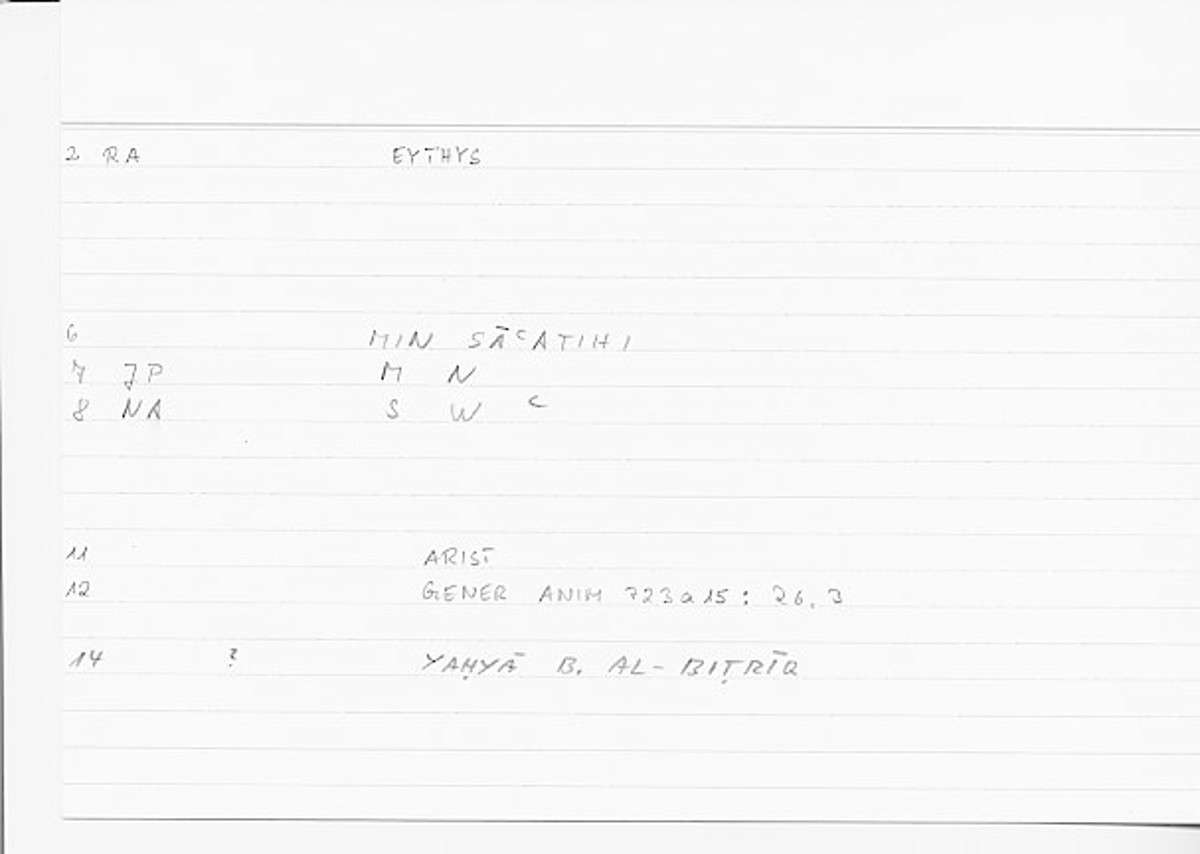 2 RA EYTHYS
6 MIN SĀᶜATIHI
7 JP M N
8 NA S W ᶜ
11 ARIST
12 GENER ANIM 723a15: 26.3
14 ? YAḤYĀ B. AL-BIṬRĪQ